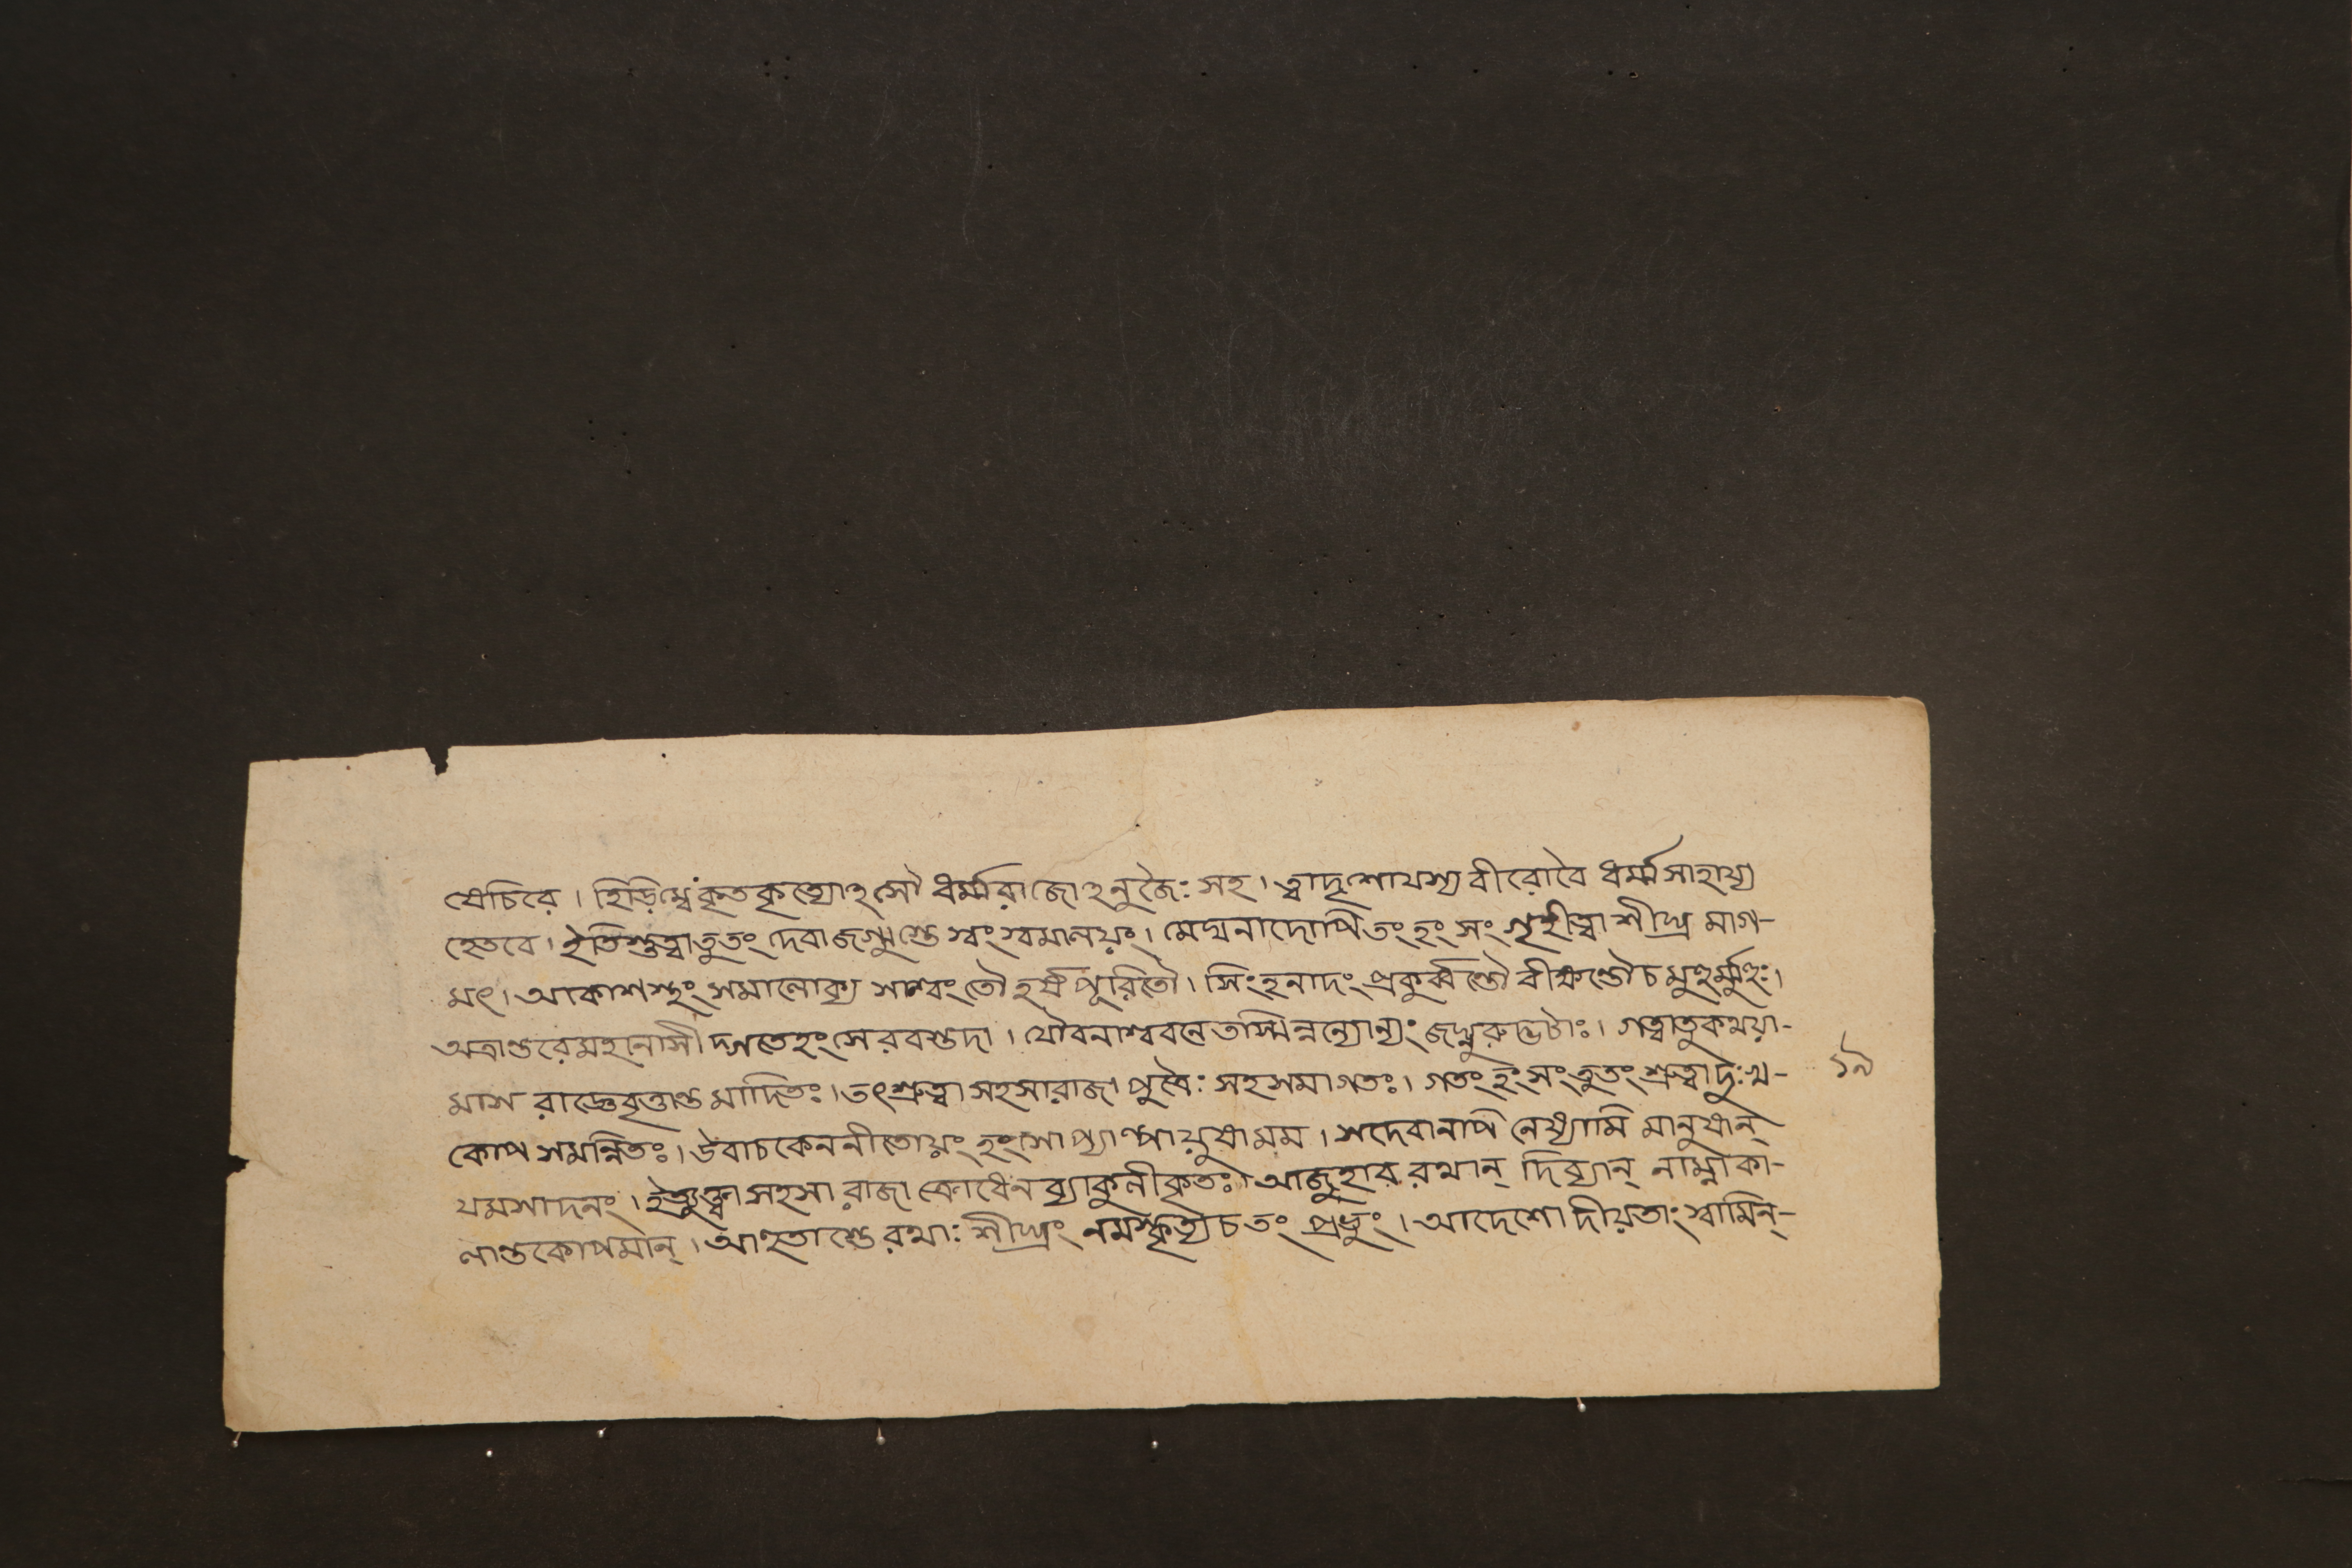 প্রোচিরে। হিড়িম্বেকৃতকৃত্যোঽসৌ ধর্ম্মরাজোঽনুজৈঃ সহ। ত্বাদৃশোযশ্য বীরোবৈ ধর্ম্মসাহায্য
হেতবে। ইতিশ্রুত্বাতুতং দেবা জগ্মুস্তে স্বং স্বমালয়ং। মেঘনাদোপিতং হং সং গৃহীত্বা শীঘ্র মাগ-
মৎ। আকাশস্থং সমালোক্য সাশ্বং তৌ হর্ষপূরিতৌ। সিংহনাদং প্রকুর্ব্বন্তৌ বীক্ষন্তৌ চ মুহুর্ম্মুহুঃ।
অত্রান্তরেমহানাসীদ্গতেহংসেরবস্তদা। যৌবনাশ্ববলেতস্মিন্নন্যোন্যং জঘ্নুরুদ্ভটাঃ। গত্বাতুকথয়া-
মাস রাজ্ঞেবৃত্তান্ত মাদিতঃ। তৎশ্রুত্বা সহসারাজা পুত্রৈঃ সহসমাগতঃ। গতং হংসংতুতং শ্রুত্বাদুঃখ-
কোপ সমন্নিতঃ। উবাচকেননীতোয়ং হংসোপ্যাল্পায়ুষামম। সদেবানপি নেষ্যামি মানুষান্
যমসাদনং। ইত্যুক্ত্বা সহসা রাজা ক্রোধেন ব্যাকুলীকৃতঃ। আজুহাব রথান্ দিব্যান্ নাম্নাকা-
লান্তকোপমান্। আহুতাস্তে রথাঃ শীঘ্রং নমস্কৃত্যচ তং প্রভুং। আদেশো দীয়তাং স্বামিন্-
১৯